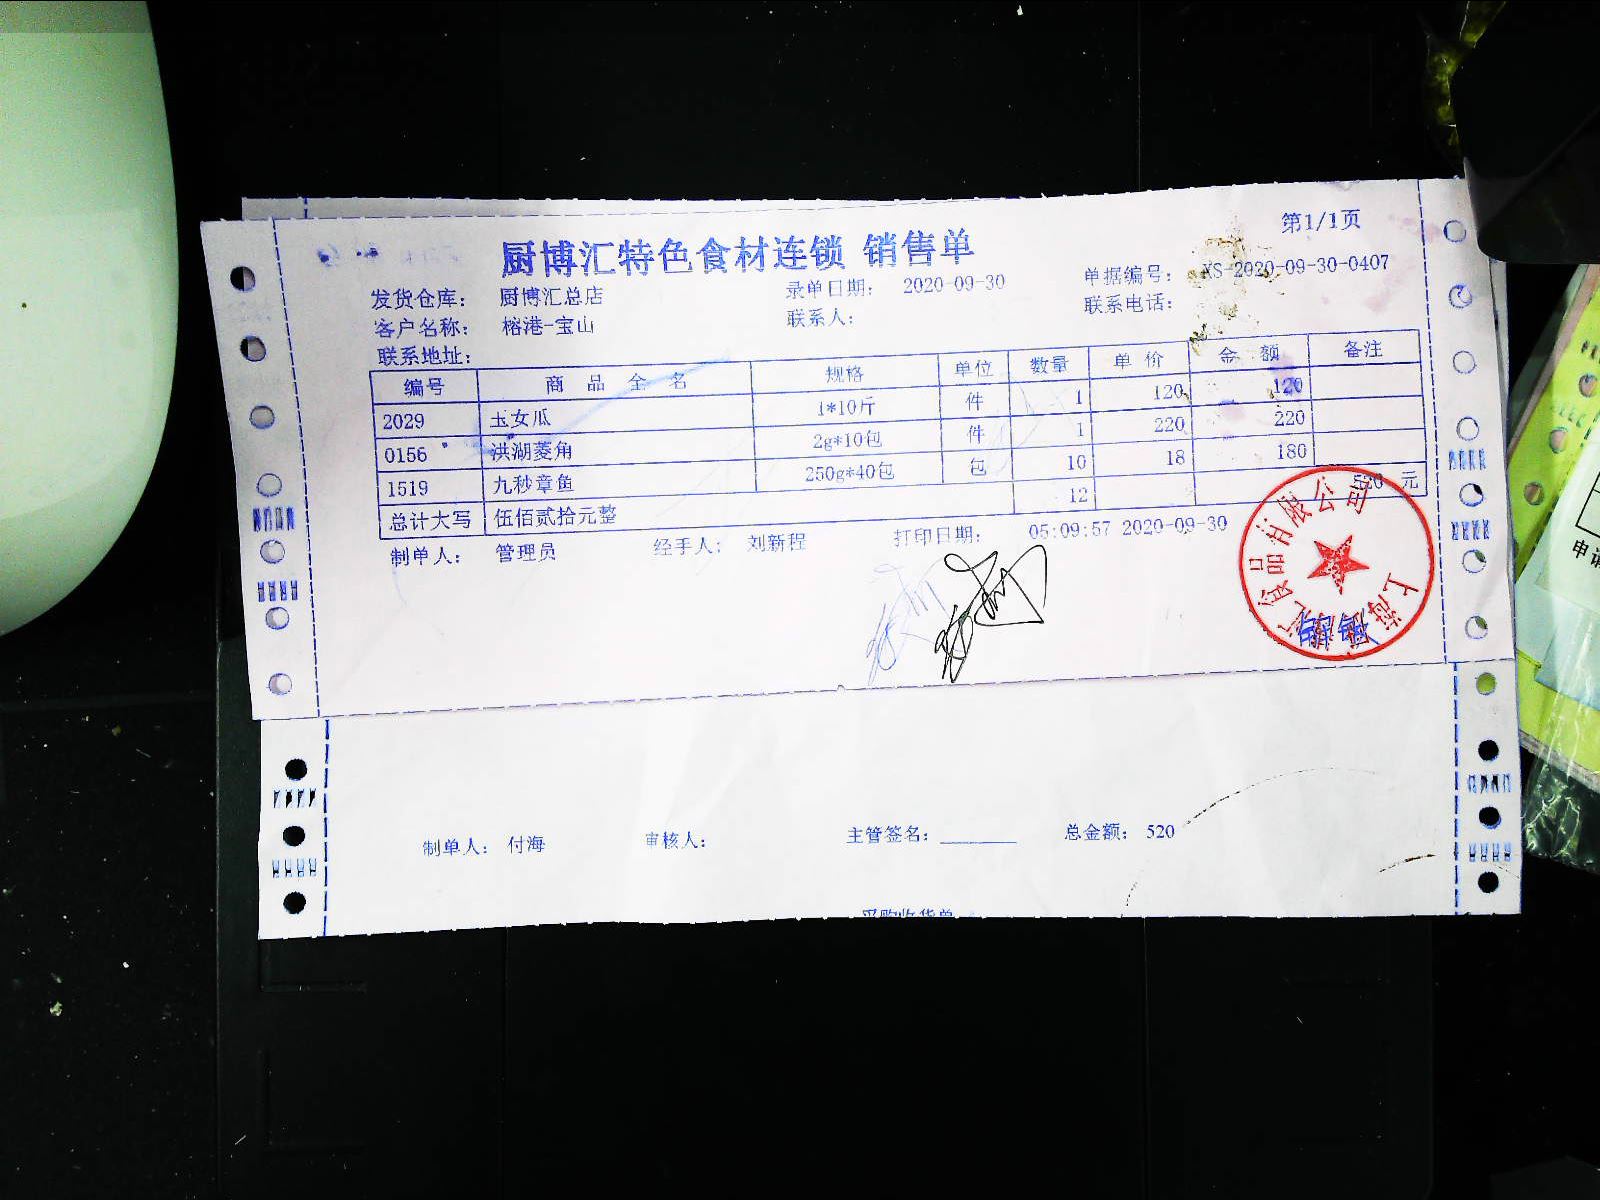 第1/1页
厨博汇特色食材连锁 销售单
发货仓库： 厨博汇总店 录单日期： 2020-09-30 单据编号： XS-2020-09-30-0407
客户名称： 榕港-宝山 联系人： 联系电话：
联系地址：
编号 商 品 全 名 规格 单位 数量 单 价 金 额 备注
2029 玉女瓜 1*10斤 件 1 120 120
0156 洪湖菱角 2g*10包 件 1 220 220
1519 九秒章鱼 250g*40包 包 10 18 180
总计大写 伍佰贰拾元整 12 520 元
制单人： 管理员 经手人： 刘新程 打印日期： 05:09:57 2020-09-30
上海 汇食品有限公司
制单人： 付海 审核人： 主管签名： 总金额： 520
采购收货单
申请